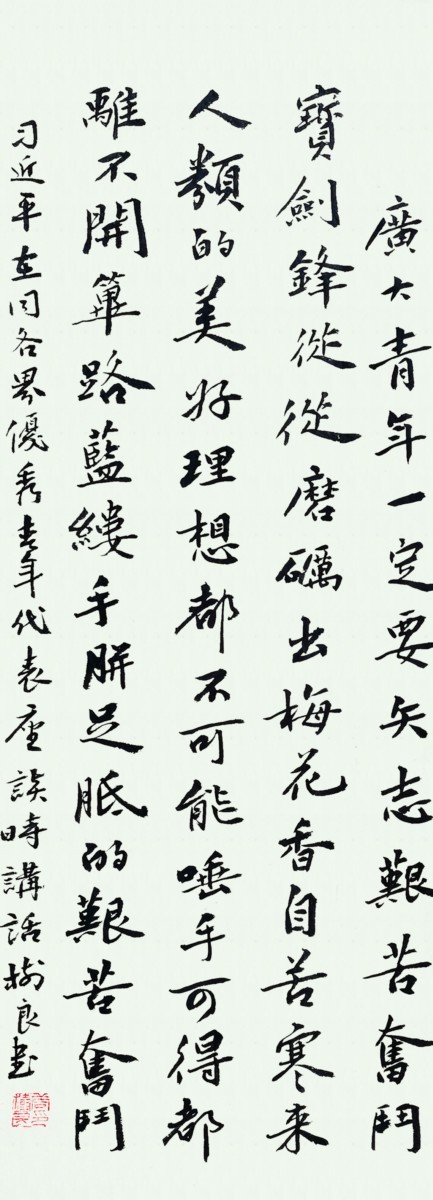 廣大青年一定要矢志艱苦奮鬥
寶劍鋒從從磨礪出梅花香自苦寒来
人類的美好理想都不可能唾手可得都
離不開篳路藍縷手胼足胝的艱苦奮鬥
习近平在同各界優秀青年代表座談時講話樹良書